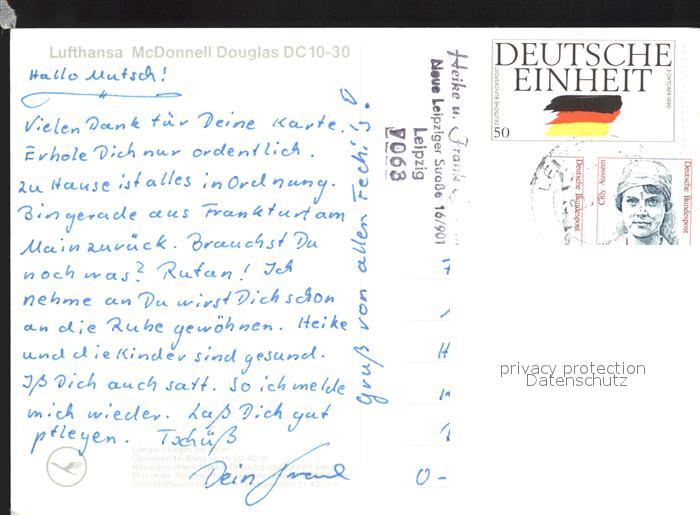 Lufthansa McDonnell Douglas DC10-30
Hallo Mutsch!
Vielen Dank für Deine Karte.
Erhole Dich nur ordentlich.
Zu Hause ist alles in Ordnung.
Bin gerade aus Frankfurt am
Main zurück. Brauchst Du
noch was? Rufan! Ich
nehme an Du wirst Dich schon
an die Ruhe gewöhnen. Heike
und die Kinder sind gesund.
Iß Dich auch satt. So ich melde
mich wieder. Laß Dich gut
pflegen. Tschüß
Dein Frank
Gruß von allen Fechi's.
Länge/Length
Heike u. Frank
Neue Leipziger Straße 16/901
Leipzig
7063
DEUTSCHE
EINHEIT
50
DEUTSCHE BUNDESPOST
3. OKTOBER 1990
Deutsche Bundespost
Cilly Aussem
Deutsche Bundespost
privacy protection
Datenschutz
O-